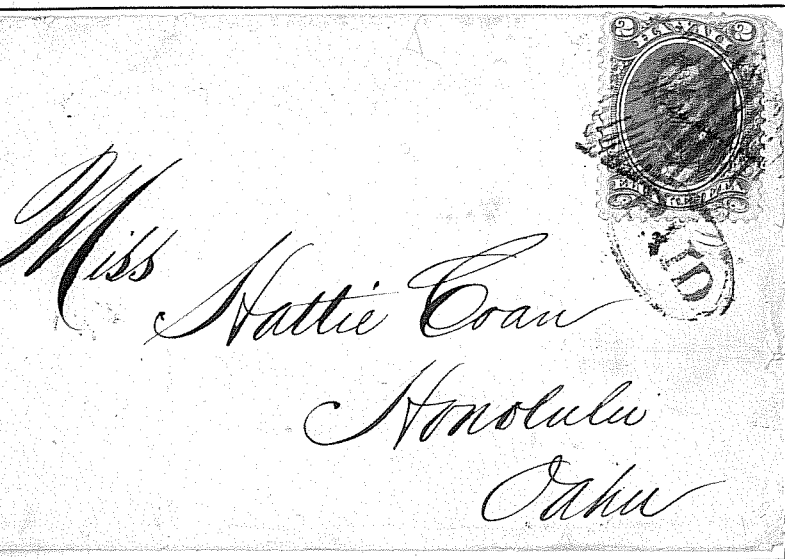 2 2
Miss
Hattie Coan
Honolulu
Oahu